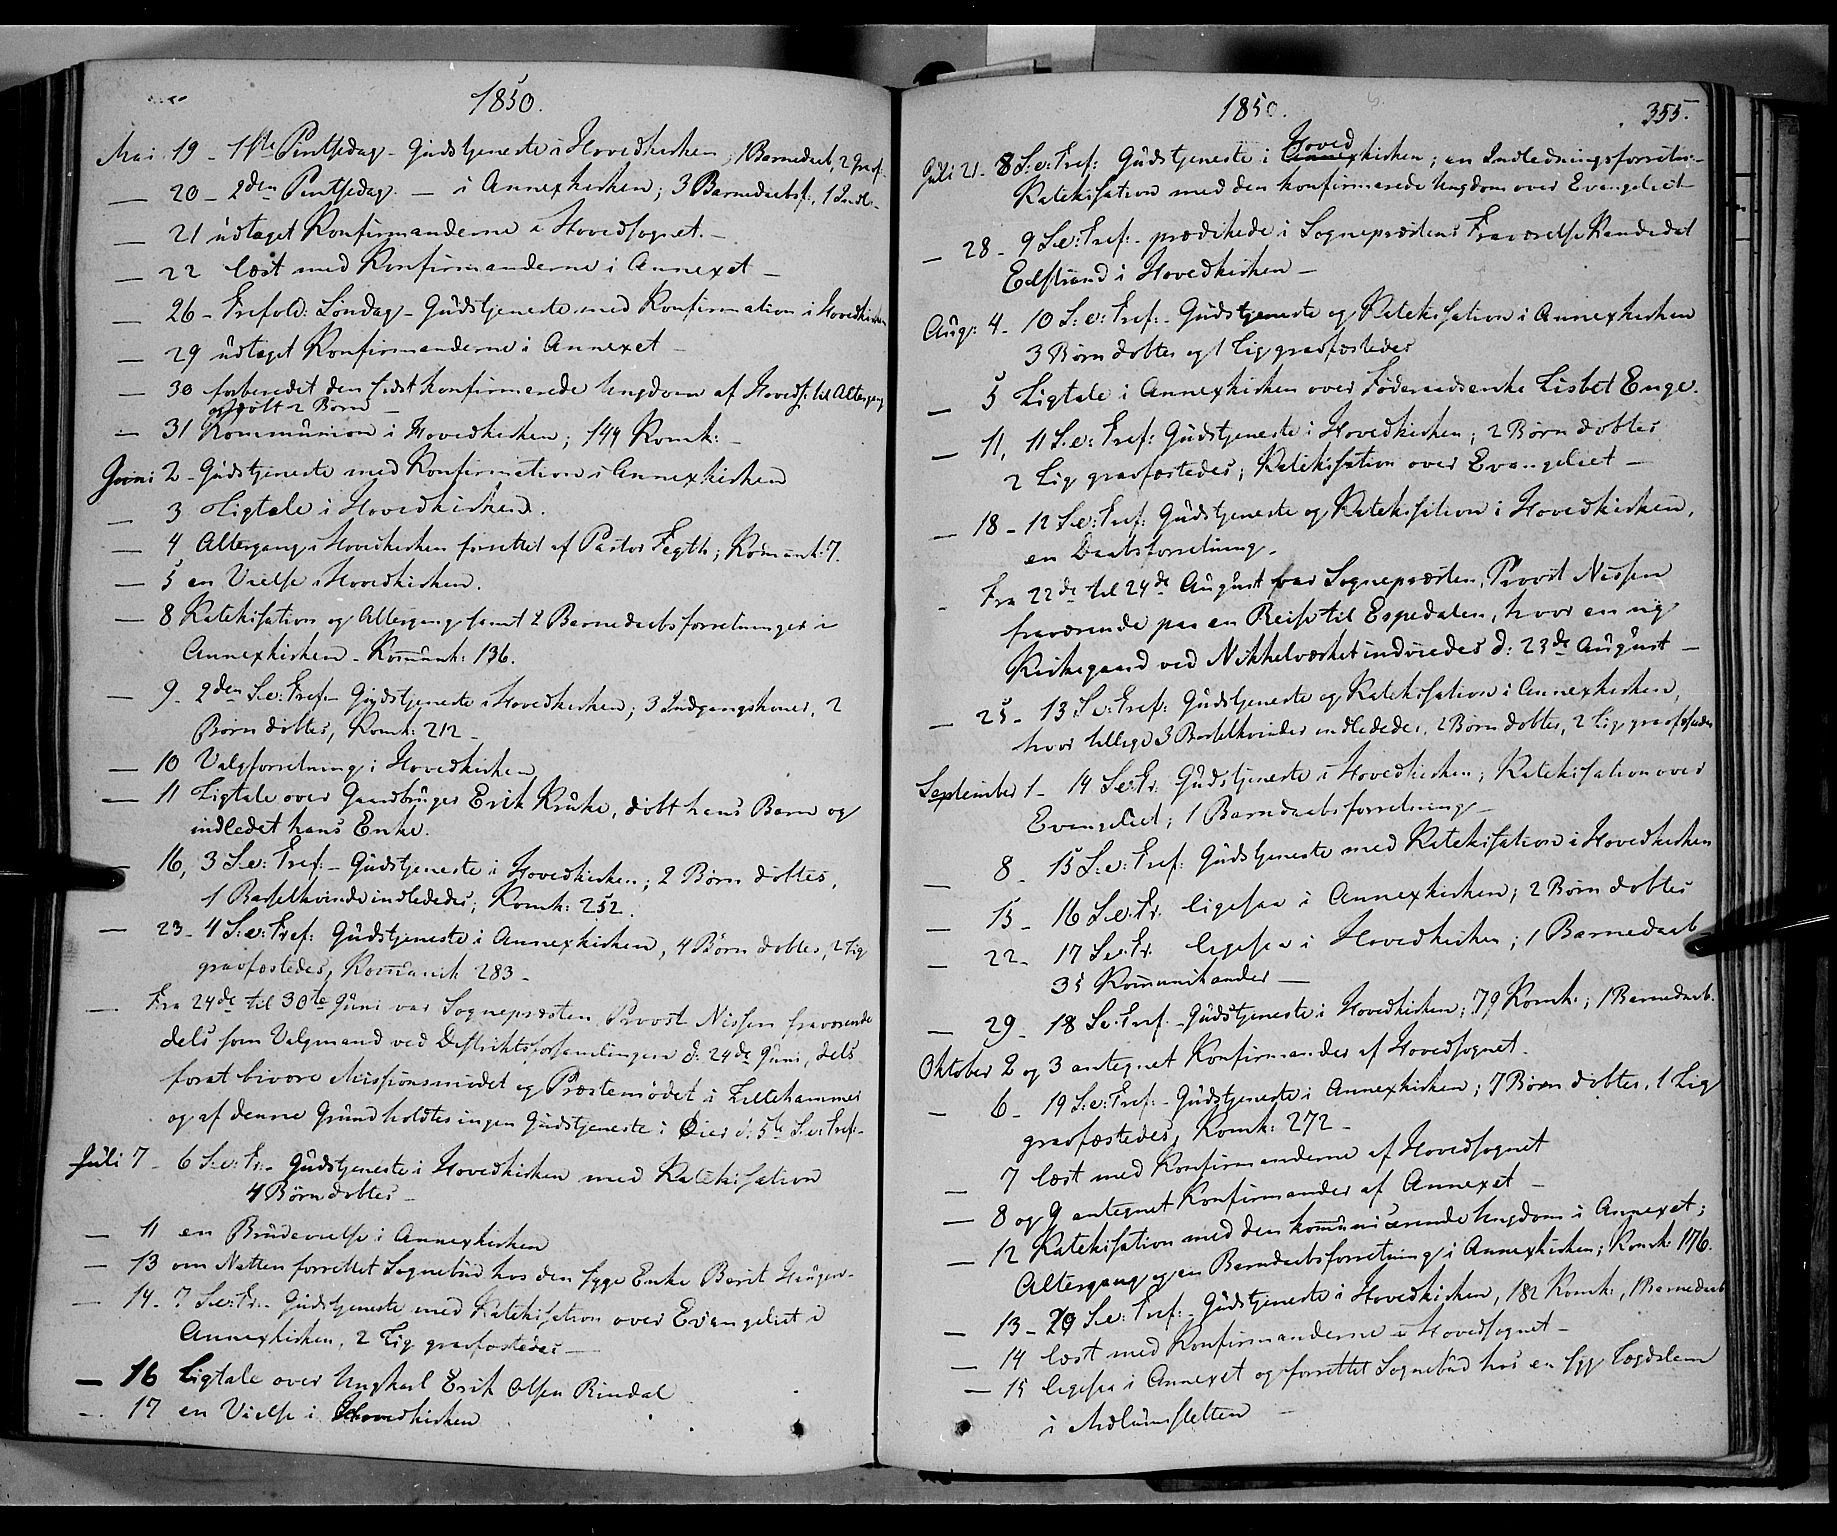 1850.
Mai 19 - 1ste Pintsedag - Gudstjeneste i Hovedkirken, 1 Barnedaab, 2 Graf-
— 20 - 2den Pintsedag. — i Annexkirken; 3 Barnedaabsf:, 1 Indl-
— 21 udtaget Konfirmanderne i Hovedsognet. -
— 22 læst med Konfirmanderne i Annexet -
— 26 - Trefold: Søndag - Gudstjeneste med Konfirmation i Hovedkirken
— 29 udtaget Konfirmanderne i Annexet -
— 30 forberedet den sidst konfirmerede Ungdom af Hoveds: til Altergang
og døbt 2 Børn -
— 31 Kommunion i Hovedkirken; 144 Komk: -
Juni 2 - Gudstjeneste med Konfirmation i Annexkirken
— 3 Ligtale i Hovedkirken.
— 4 Altergang i Hovedkirken forrettet af Pastor Fegth; Komunk: 7.
— 5 en Vielse i Hovedkirken.
— 8 Katekisation og Altergang samt 2 Barnedaabsforretninger i
Annexkirken - Komunk: 136.
— 9 - 2den S.e: Tref - Gudstjeneste i Hovedkirken; 3 Indgangskoner, 2
Børn døbtes, Komk: 212 -
— 10 Valgforretning i Hovedkirken
— 11 Ligtale over Gaardbruger Erik Kruke, døbt hans Barn og
indledet hans Enke.
— 16, 3 S.e: Tref: - Gudstjeneste i Hovedkirken; 2 Børn døbtes,
1 Barselkvinde indlededes; Komk: 252.
— 23 - 4 S:e: Tref: Gudstjeneste i Annexkirken, 4 Børn døbtes, 2 Lig
gravfæstedes, Komunik 283 -
— Fra 24de til 30te Juni var Sognepræsten, Provst Nissen fraværende
dels som Valgmand ved Distriktsforsamlingen d: 24de Juni, dels
forat bivære Missionsmødet og Præstemødet i Lillehammer
og af denne Grund holdtes ingen Gudstjeneste i Øier d: 5te S.e: Tref: -
Juli 7 - 6 S.e: Tr: - Gudstjeneste i Hovedkirken med Katekisation
4 Børn døbtes -
— 11 en Brudevielse i Annexkirken
— 13 om Natten forrettet Sognebud hos den syge Enke Berit Haugen -
— 14 - 7 S.e: Tr: - Gudstjeneste med Katekisation over Evangeliet i
Annexkirken, 2 Lig gravfæstedes —
— 16 Ligtale over Ungkarl Erik Olsen Rindal
— 17 en Vielse i Hovedkirken
1850. 355.
Juli 21 - 8 S.e: Tref: Gudstjeneste i Hovedkirken; en Indledningsforretn: -
Katekisation med den konfirmerede Ungdom over Evangeliet -
— 28 - 9 S.e: Tref: - prædikede i Sognepræstens Fraværelse Kandidat
Edstrand i Hovedkirken —
Aug: 4 - 10 S:e: Tref: - Gudstjeneste og Katekisation i Annexkirken
3 Børn døbtes og 1 Lig gravfæstedes
— 5 Ligtale i Annexkirken over Føderaadsenke Lisbet Enge.
— 11, 11 S.e: Tref: Gudstjeneste i Hovedkirken; 2 Børn døbtes
2 Lig gravfæstedes; Katekisation over Evangeliet -
— 18 - 12 S.e: Tref: Gudstjeneste og Katekisation i Hovedkirken,
en Daabsforretning -
- Fra 22de til 24de August var Sognepræsten, Provst Nissen
fraværende paa en Reise til Espedalen, hvor en ny
Kirkegaard ved Nikkelværket indviedes d: 23de August -
— 25 - 13 S.e: Tref: Gudstjeneste og Katekisation i Annexkirken,
hvor tillige 3 Barselkvinder indlededes, 2 Børn døbtes, 2 Lig gravfæstedes
September 1 - 14 S.e: Tr: Gudstjeneste i Hovedkirken; Katekisation over
Evangeliet; 1 Barnedaabsforretning -
— 8 - 15 S.e: Tref: Gudstjeneste med Katekisation i Hovedkirken
— 15 - 16 S.e: Tr. ligesaa i Annexkirken; 2 Børn døbtes
— 22 - 17 S.e: Tr. ligesaa i Hovedkirken; 1 Barnedaab
35 Komunikander -
— 29 - 18 S.e: Tref - Gudstjeneste i Hovedkirken; 79 Komk:; 1 Barnedaab.
Oktober 2 og 3 antegnet Konfirmander af Hovedsognet.
— 6 - 19 S:e: Tref: - Gudstjeneste i Annexkirken; 7 Børn døbtes, 1 Lig
gravfæstedes, Komk: 272 -
— 7 læst med Konfirmanderne af Hovedsognet
— 8 og 9 antegnet Konfirmander af Annexet -
— 12 Katekisation med den kommunicerende Ungdom i Annexet;
Altergang og en Barnedaabsforretning i Annexkirken; Komk: 176.
— 13 - 20 S.e: Tref: - Gudstjeneste i Hovedkirken, 182 Komk:, 1 Barnedaab
— 14 læst med Konfirmanderne i Hovedsognet -
— 15 ligesaa i Annexet og forrettet Sognebud hos en syg Lægdslem
i Mælumsletten -